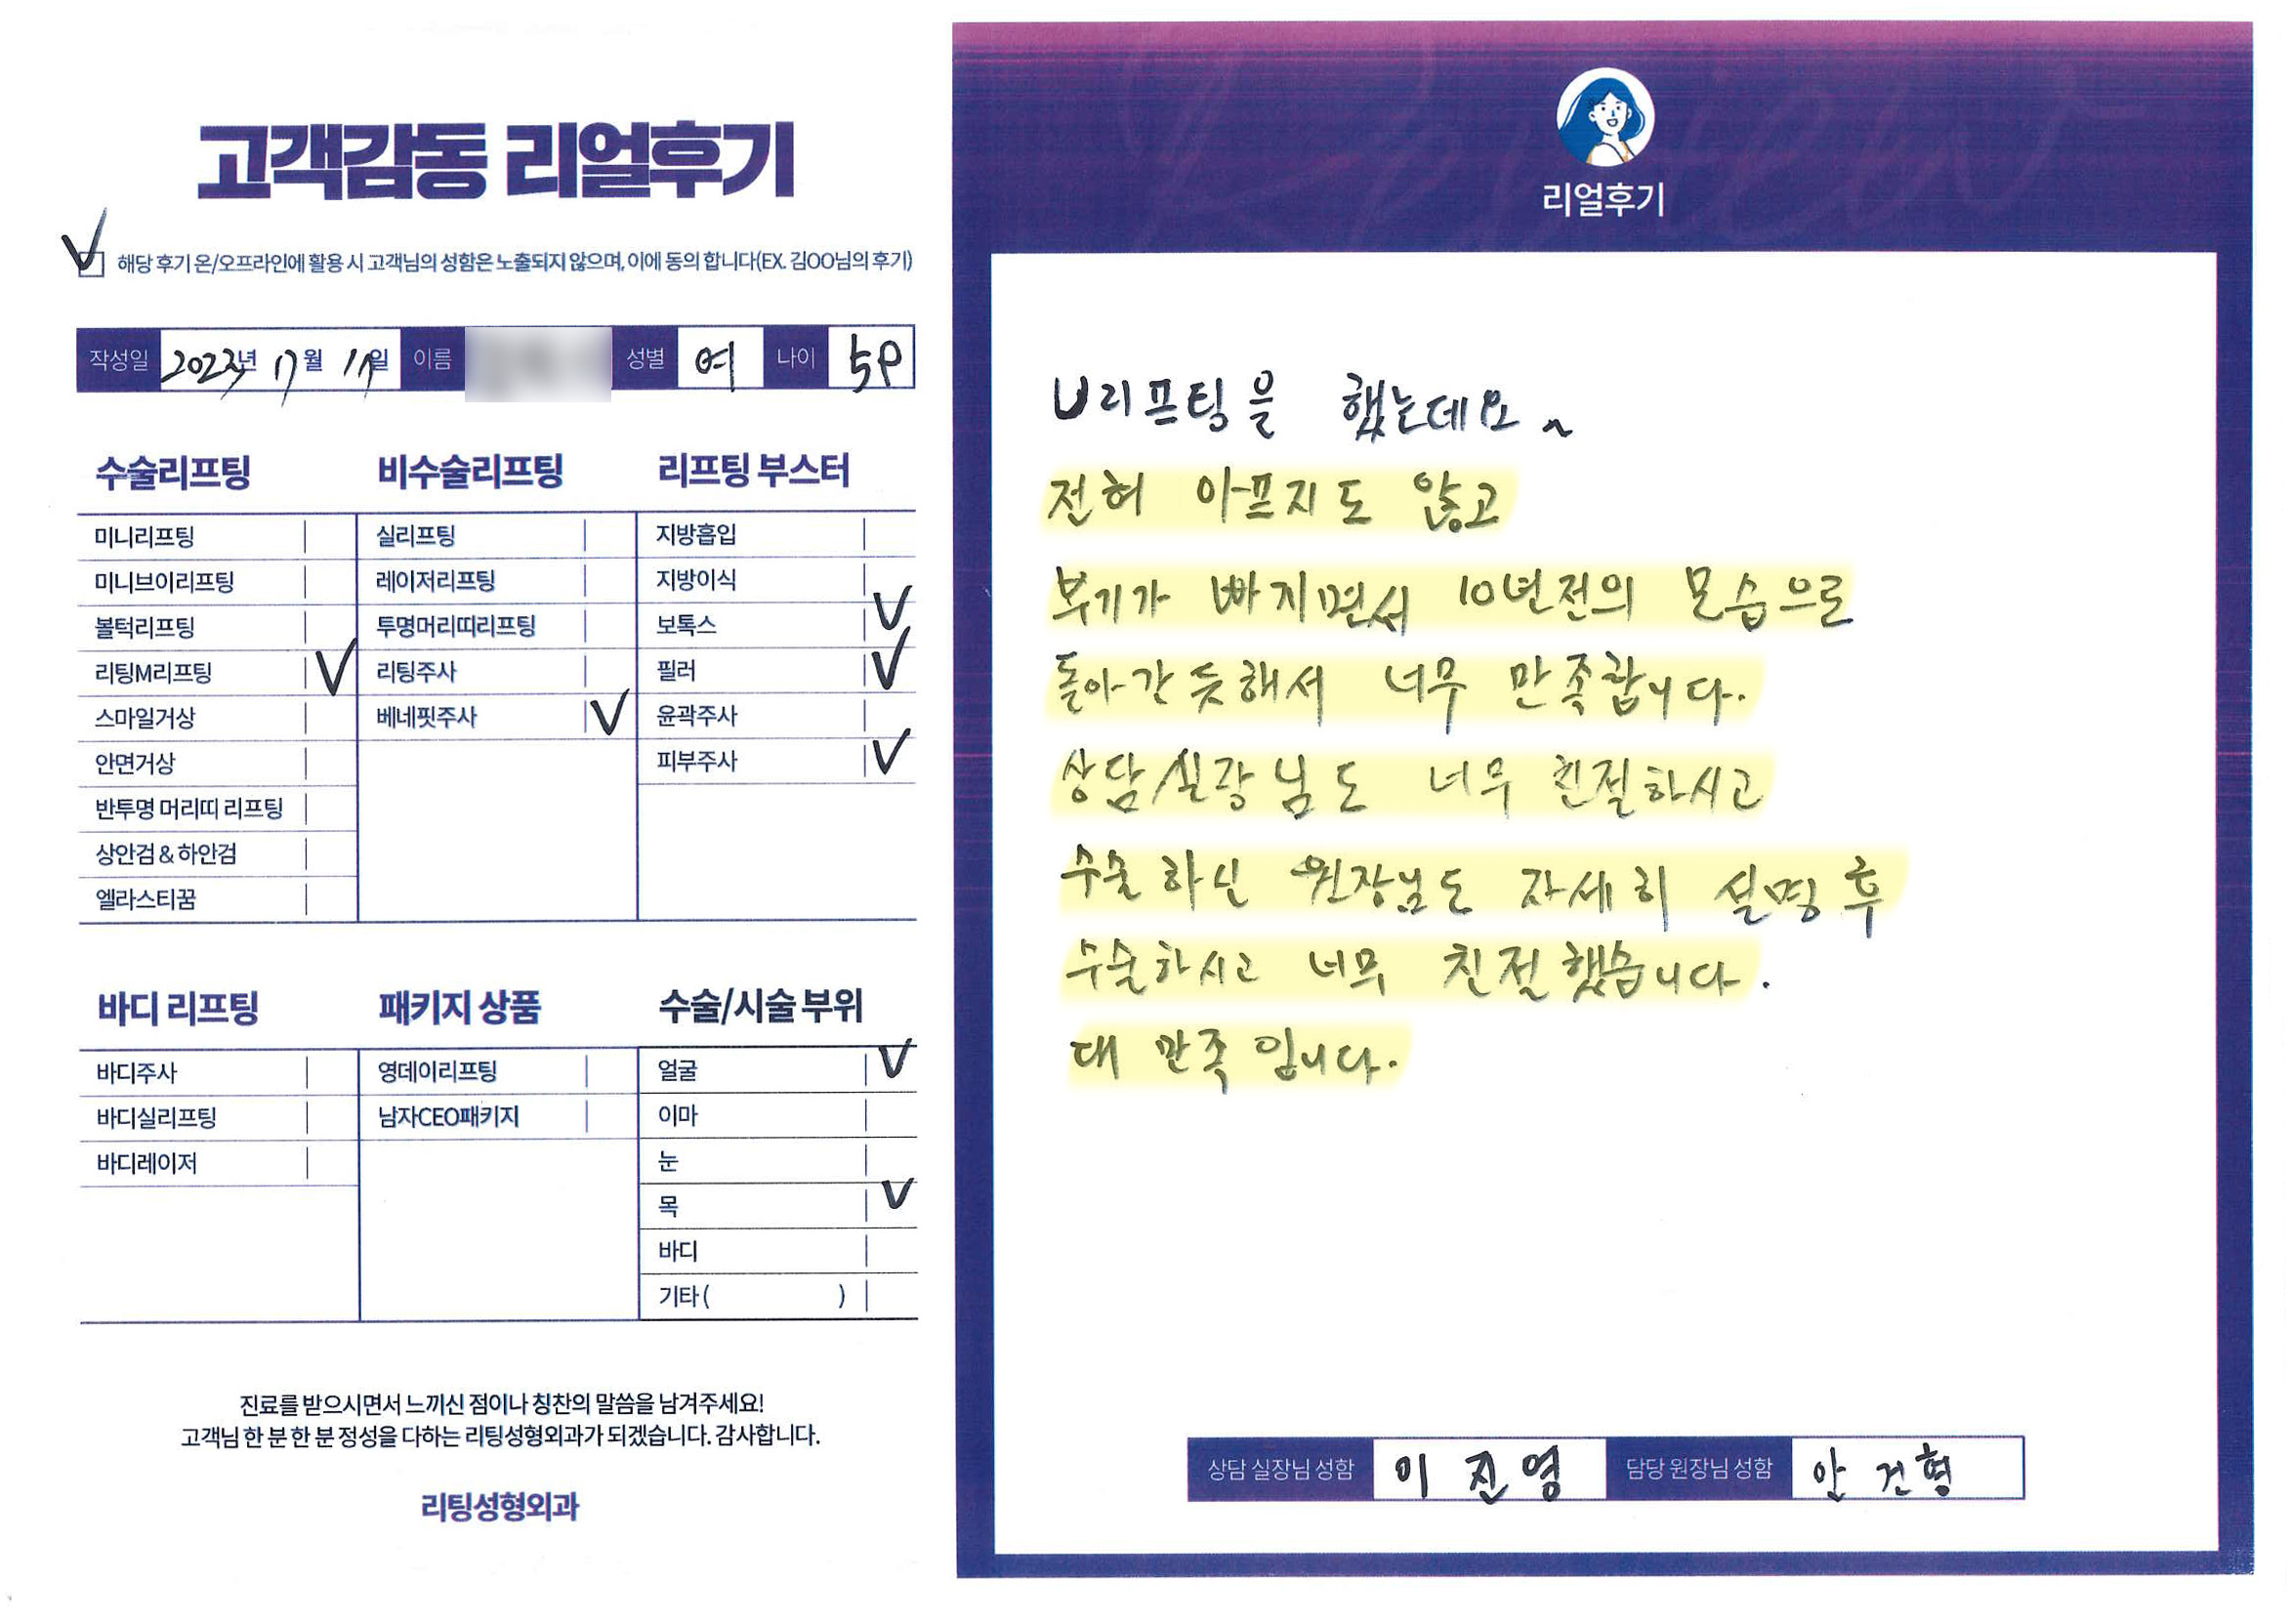 고객감동 리얼후기
해당 후기 온/오프라인에 활용 시 고객님의 성함은 노출되지 않으며, 이에 동의 합니다(EX. 김OO님의 후기)
작성일 년 월 일 이름 성별 여 나이
수술리프팅
미니리프팅
미니브이리프팅
볼턱리프팅
리팅M리프팅
스마일거상
안면거상
반투명 머리띠 리프팅
상안검 & 하안검
엘라스티꿈
비수술리프팅
실리프팅
레이저리프팅
투명머리띠리프팅
리팅주사
베네핏주사
리프팅 부스터
지방흡입
지방이식
보톡스
필러
윤곽주사
피부주사
바디 리프팅
바디주사
바디실리프팅
바디레이저
패키지 상품
영데이리프팅
남자CEO패키지
수술/시술 부위
얼굴
이마
눈
목
바디
기타 ( )
진료를 받으시면서 느끼신 점이나 칭찬의 말씀을 남겨주세요!
고객님 한 분 한 분 정성을 다하는 리팅성형외과가 되겠습니다. 감사합니다.
리팅성형외과
리얼후기
리프팅을 했는데요~
전혀 아프지도 않고
부기가 빠지면서 10년전의 모습으로
돌아간듯해서 너무 만족합니다.
상담실장님도 너무 친절하시고
수술하신 원장님도 자세히 설명 후
수술하시고 너무 친절했습니다.
대 만족 입니다.
상담 실장님 성함 이진영 담당 원장님 성함 안건형